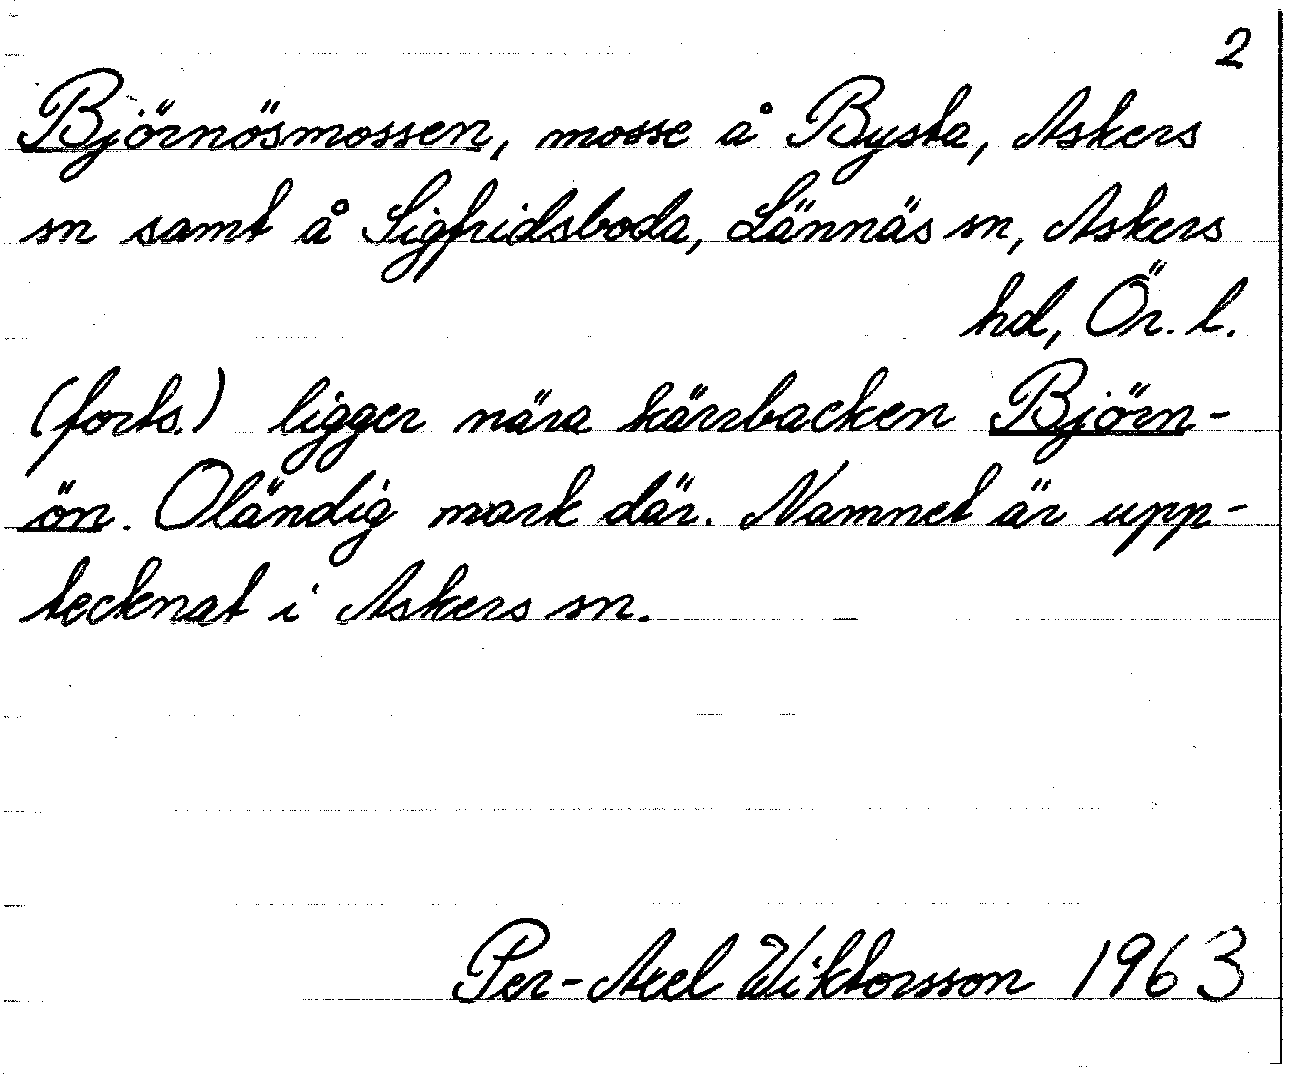 2
Björnösmossen, mosse å Bysta, Askers
sn samt å Sigfridsboda, Lännäs sn, Askers
hd, Ör. l.
(forts.) ligger nära kärrbacken Björn-
ön. Oländig mark där. Namnet är upp-
tecknat i Askers sn.
Per-Axel Wiktorsson 1963